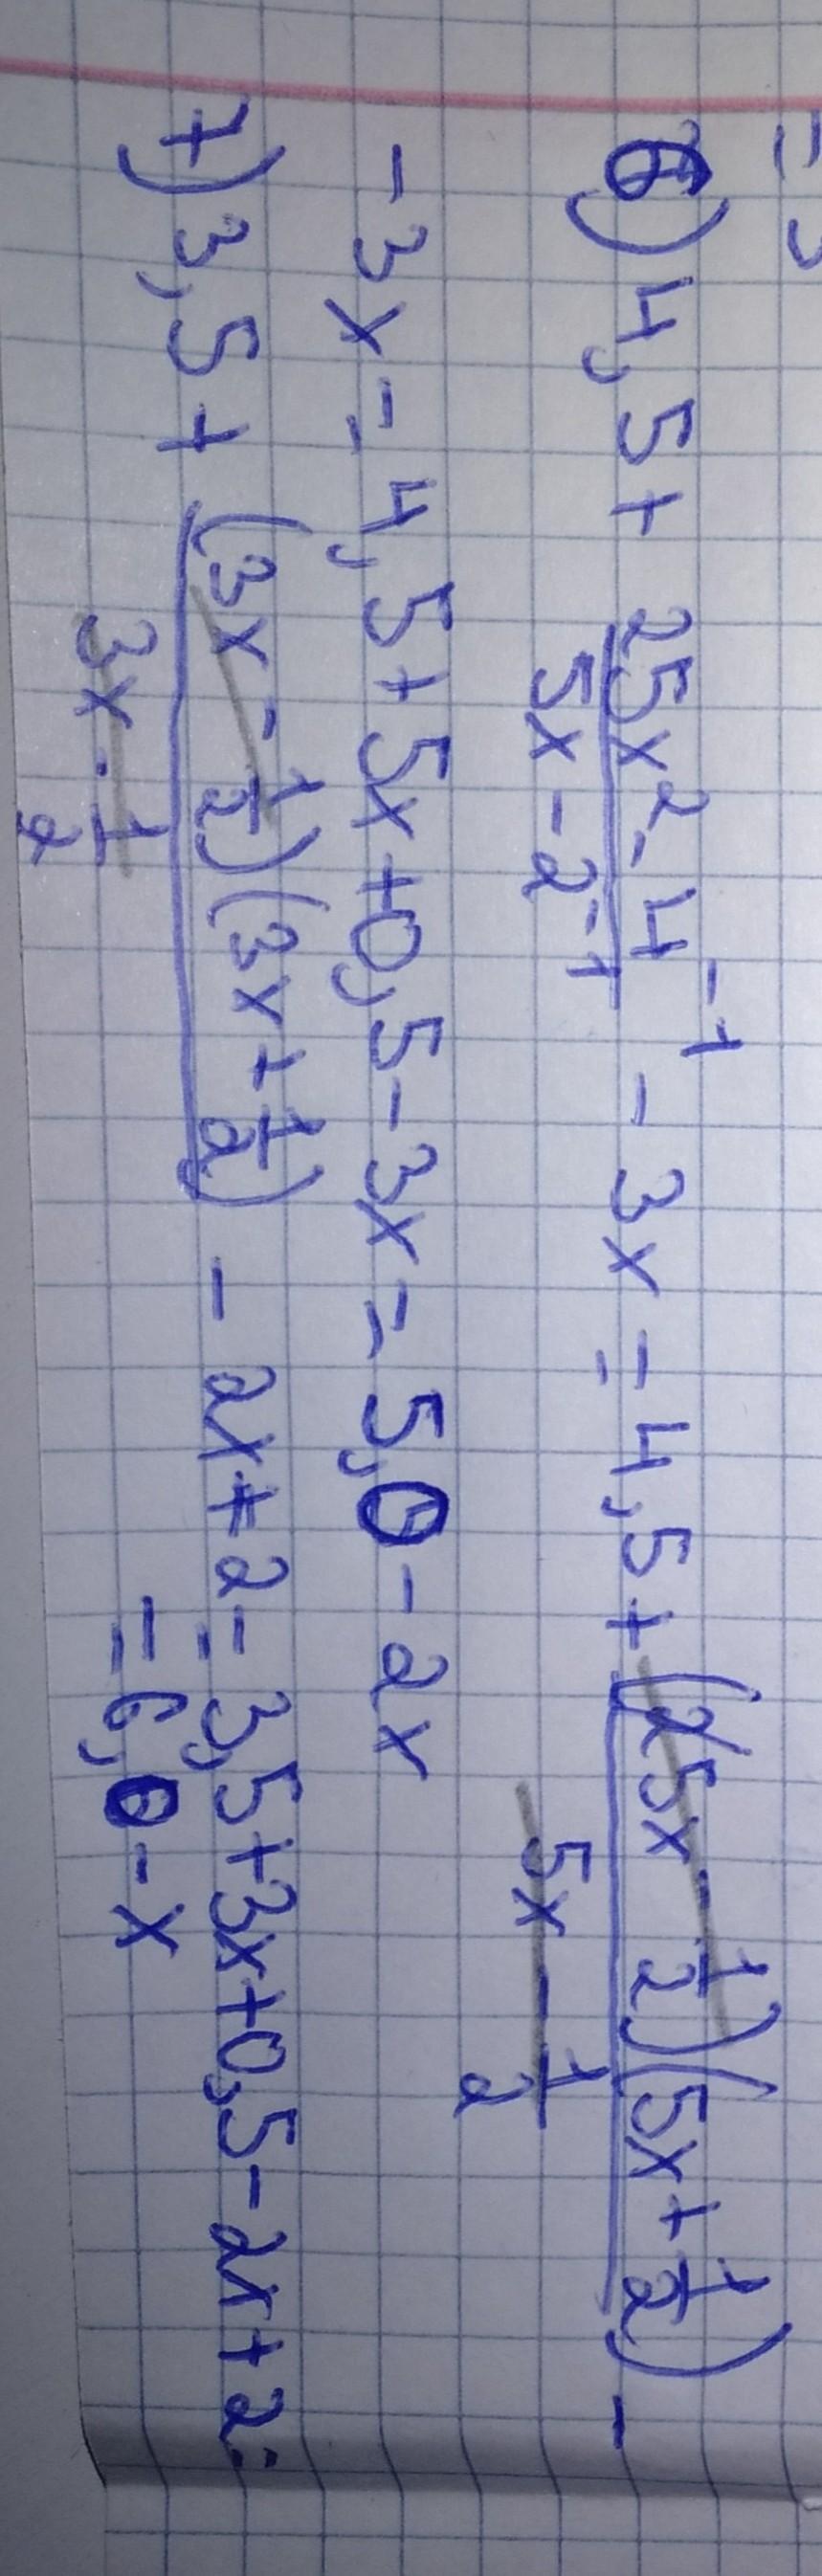 = 3
6) 4,5 + \frac{25x^2 - 4^{-1}}{5x - 2^{-1}} - 3x = 4,5 + \frac{(5x - \frac{1}{2})(5x + \frac{1}{2})}{5x - \frac{1}{2}} -
- 3x = 4,5 + 5x + 0,5 - 3x = 5,0 - 2x
7) 3,5 + \frac{(3x - \frac{1}{2})(3x + \frac{1}{2})}{3x - \frac{1}{2}} - 2x + 2 = 3,5 + 3x + 0,5 - 2x + 2 =
= 6,0 - x